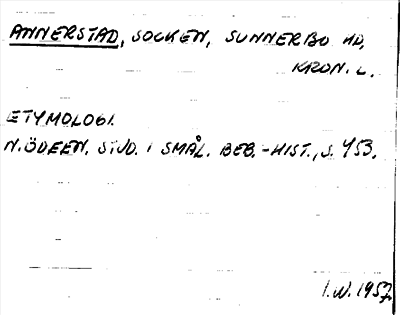 ANNERSTAD, SOCKEN, SUNNERBO HD,
KRON. L.
ETYMOLOGI.
N. ÖDEEN. STUD. I SMÅL. BEB.-HIST., S. 453.
I.W. 1957.